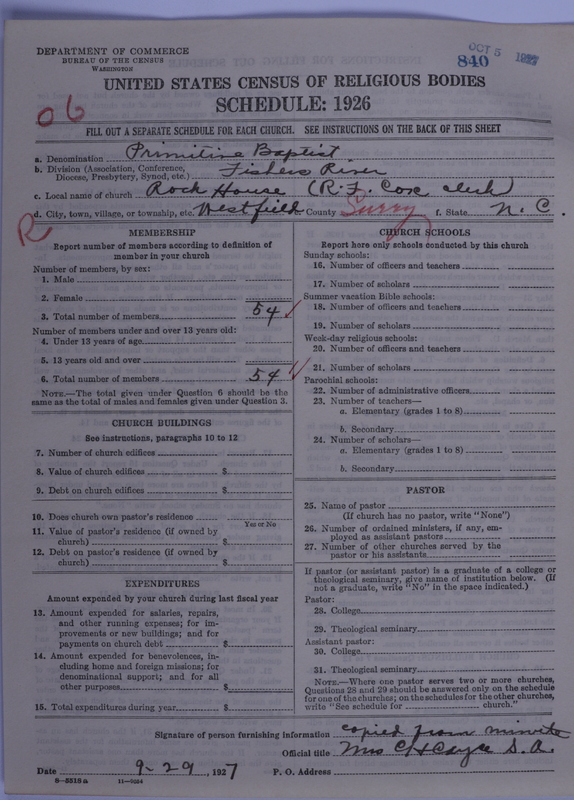 DEPARTMENT OF COMMERCE
BUREAU OF THE CENSUS
WASHINGTON
OCT 5 1927
840
UNITED STATES CENSUS OF RELIGIOUS BODIES
SCHEDULE: 1926
06
FILL OUT A SEPARATE SCHEDULE FOR EACH CHURCH. SEE INSTRUCTIONS ON THE BACK OF THIS SHEET
a. Denomination Primitive Baptist
b. Division (Association, Conference, Diocese, Presbytery, Synod, etc.) Fishers River
c. Local name of church Rock House (R.F. Cox clerk)
d. City, town, village, or township, etc. Westfield e. County Surry f. State N.C.
R
MEMBERSHIP
Report number of members according to definition of
member in your church
Number of members, by sex:
1. Male
2. Female
3. Total number of members 54
Number of members under and over 13 years old:
4. Under 13 years of age
5. 13 years old and over
6. Total number of members 54
NOTE.—The total given under Question 6 should be the
same as the total of males and females given under Question 3.
CHURCH BUILDINGS
See instructions, paragraphs 10 to 12
7. Number of church edifices
8. Value of church edifices $
9. Debt on church edifices $
10. Does church own pastor's residence
Yes or No
11. Value of pastor's residence (if owned by
church) $
12. Debt on pastor's residence (if owned by
church) $
EXPENDITURES
Amount expended by your church during last fiscal year
13. Amount expended for salaries, repairs,
and other running expenses; for im-
provements or new buildings; and for
payments on church debt $
14. Amount expended for benevolences, in-
cluding home and foreign missions; for
denominational support; and for all
other purposes $
15. Total expenditures during year $
CHURCH SCHOOLS
Report here only schools conducted by this church
Sunday schools:
16. Number of officers and teachers
17. Number of scholars
Summer vacation Bible schools:
18. Number of officers and teachers
19. Number of scholars
Week-day religious schools:
20. Number of officers and teachers
21. Number of scholars
Parochial schools:
22. Number of administrative officers
23. Number of teachers—
a. Elementary (grades 1 to 8)
b. Secondary
24. Number of scholars—
a. Elementary (grades 1 to 8)
b. Secondary
PASTOR
25. Name of pastor
(If church has no pastor, write "None")
26. Number of ordained ministers, if any, em-
ployed as assistant pastors
27. Number of other churches served by the
pastor or his assistants
If pastor (or assistant pastor) is a graduate of a college or
theological seminary, give name of institution below. (If
not a graduate, write "No" in the space indicated.)
Pastor:
28. College
29. Theological seminary
Assistant pastor:
30. College
31. Theological seminary
NOTE.—Where one pastor serves two or more churches,
Questions 28 and 29 should be answered only on the schedule
for one of the churches; on the schedules for the other churches,
write "See schedule for church."
Signature of person furnishing information copied from minute
Official title Mrs C H Cayce S.A.
Date 9-29, 1927 P. O. Address
8-5518a 11-9064